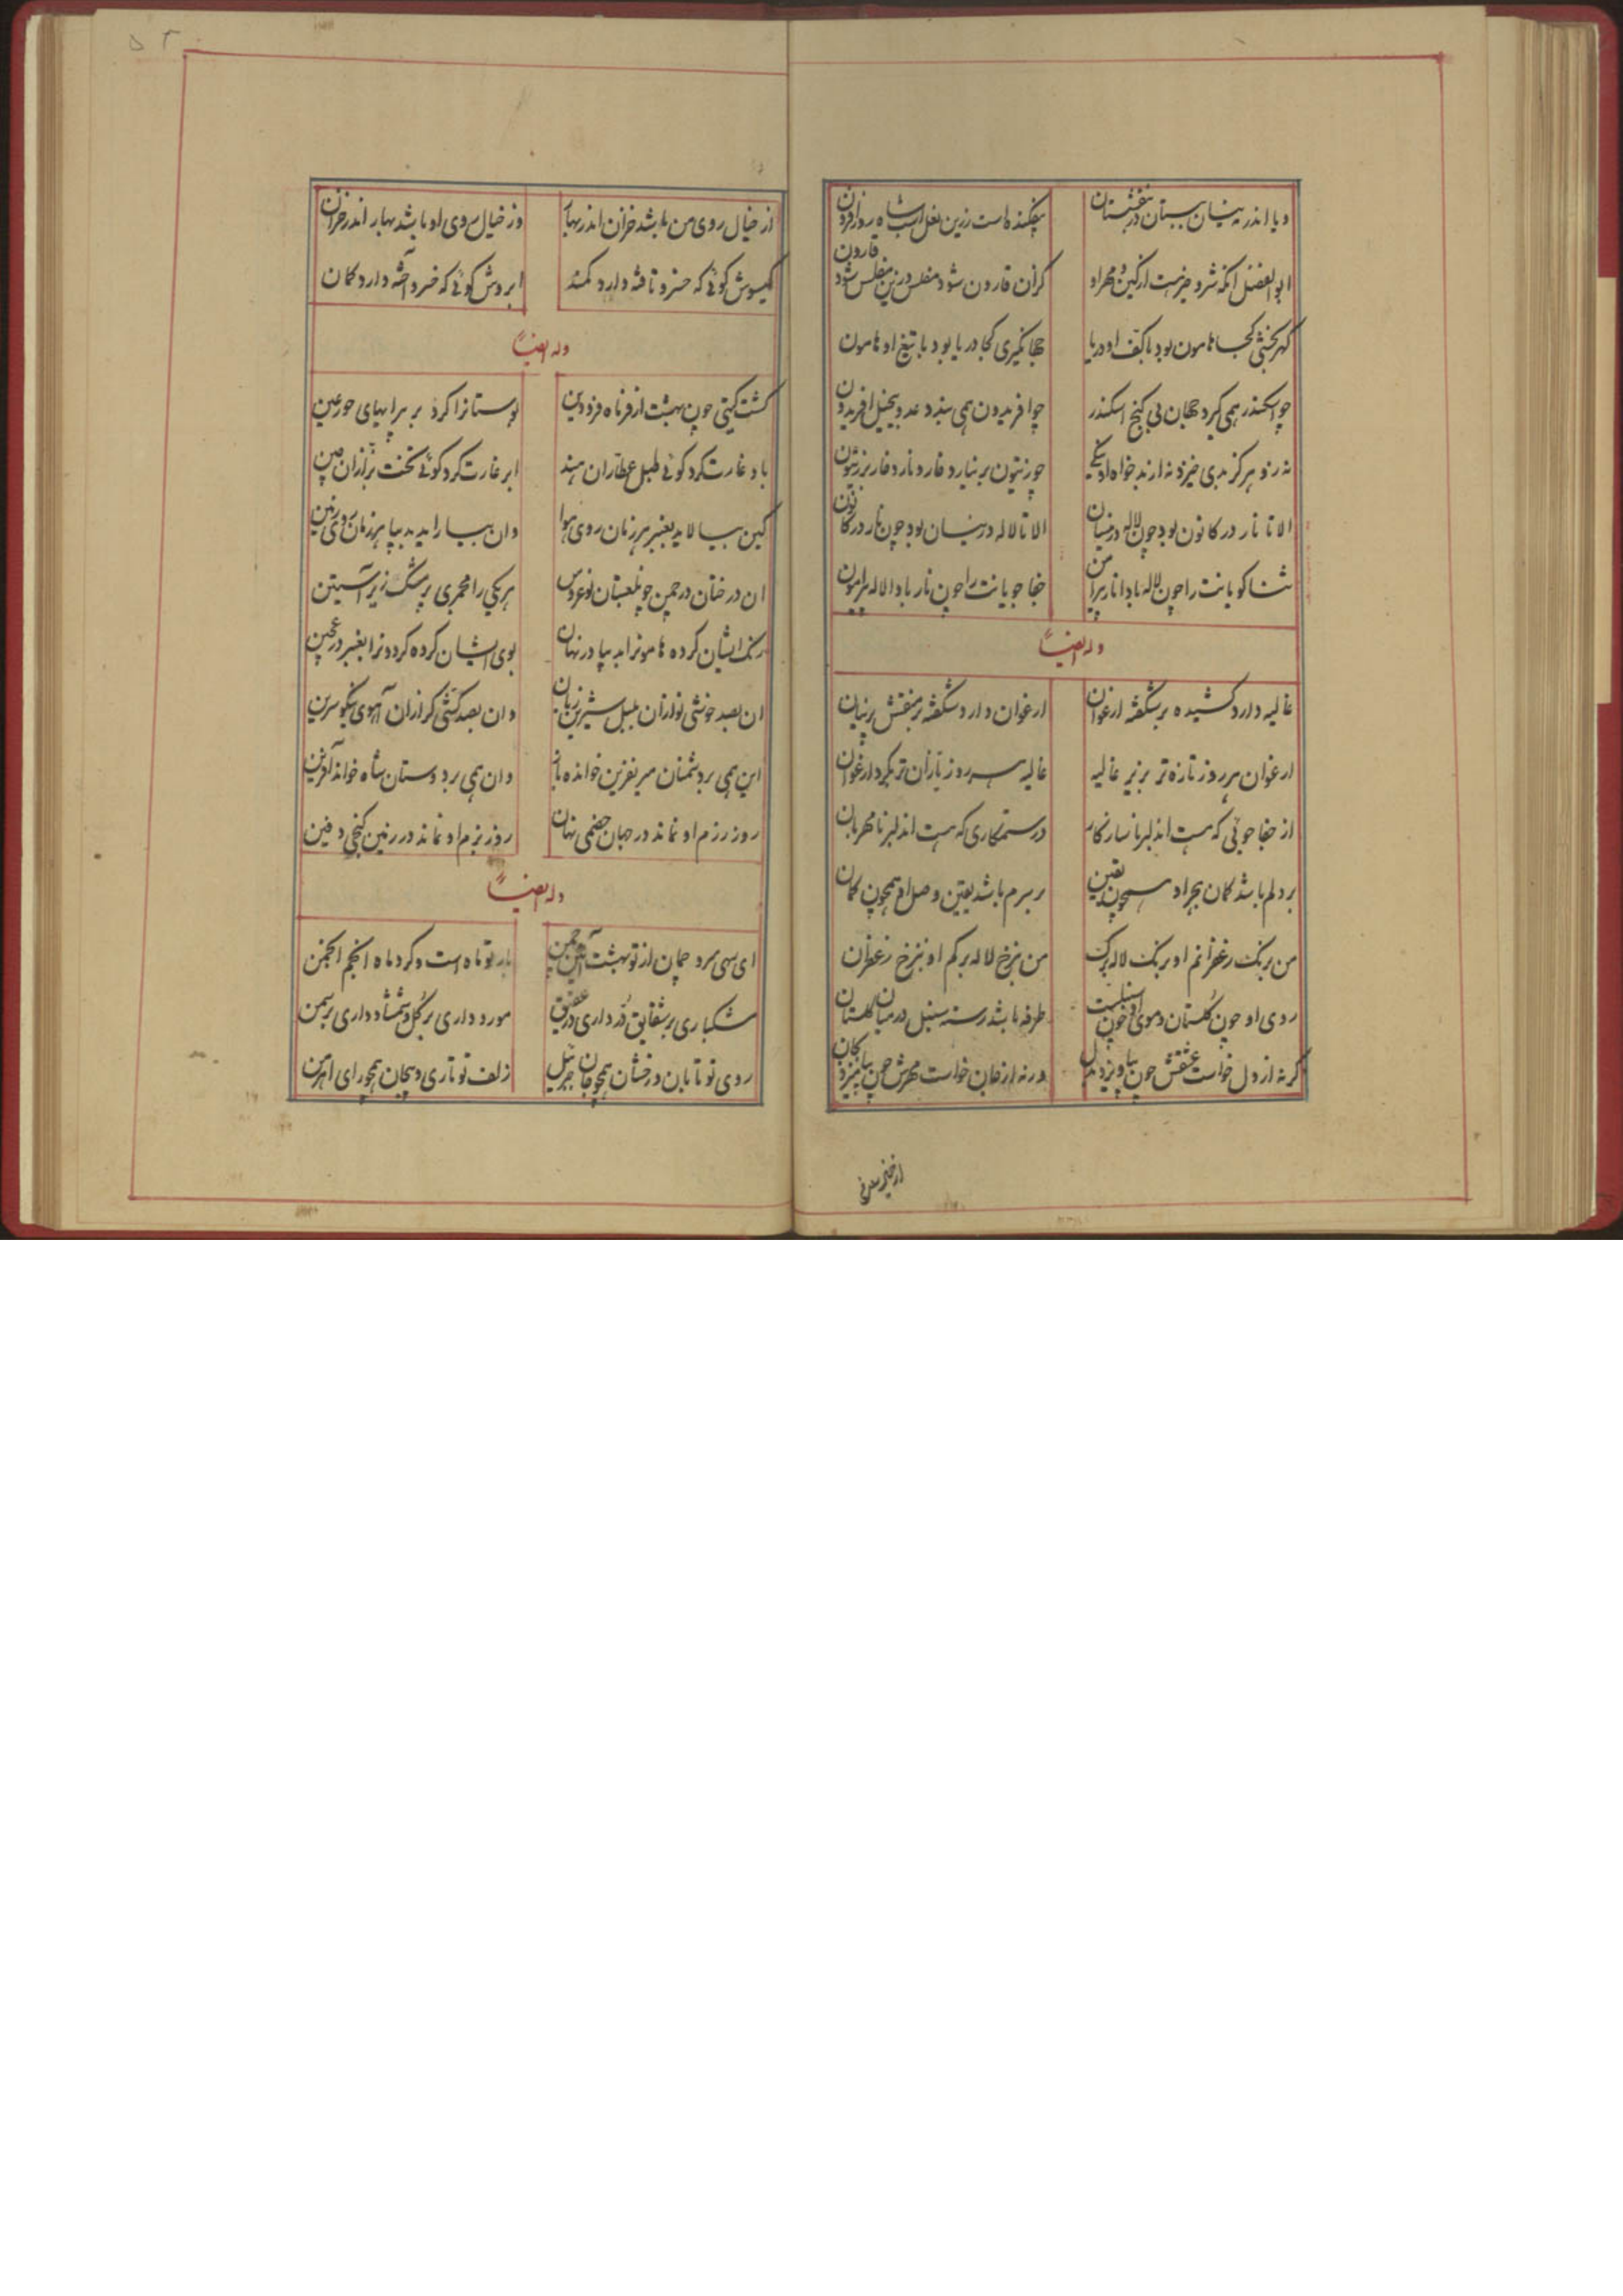 ۵۲
و یا اندر نیسان ببستان در بنفشستان
بفکنده است زرین نعل اسب شاه
ابوالفضل آنکه شر و خیر هست از کین و مهر او
کزان قارون شود مفلس وزین مفلس شود قارون
گهربخشی کجا هامون بود با کف او دریا
جهانگیری کجا دریا بود با تیغ او هامون
چو اسکندر همی گیرد جهان بی گنج اسکندر
چو افریدون همی بندد عدو بیخیل افریدون
نه زو هرگز بدی خیزد نه از بدخواه او نیکی
چو زیتون بر نیارد خار و نارد خار بر زیتون
الا تا نار در کانون بود چون لاله در نیسان
الا تا لاله در نیسان بود چون نار در کانون
ثناگویانت را چون لاله بادا نار پیرامن
جفاجویانت را چون نار بادا لاله پیرامون
وله ایضاً
غالیه دارد کشیده بر شکفته ارغوان
ارغوان دارد شکفته بر منقش پرنیان
ارغوان هر روز تازه‌تر بزیر غالیه
غالیه هر روز تازان تر بگرد ارغوان
از جفاجوئی که هست آن دلبر ناسازگار
در ستمکاری که هست آن دلبر نامهربان
بر دلم باشد گمان هجر او همچون یقین
بر سرم باشد یقین وصل او همچون گمان
من برنگ زعفرانم او برنگ لاله برگ
من نرخ لاله برگم او نرخ زعفران
روی او چون گلستان و موی او چون سنبلست
طرفه باشد رسته سنبل در میان گلستان
گرنه از دل خواست عشقش چون بیاویزد بدل
ورنه از جان خواست مهرش چون بیامیزد بجان
از خیل سرو
از خیال روی من باشد خزان اندر بهار
وز خیال روی او باشد بهار اندر خزان
گیسوش گوئی که خسرو تافته دارد کمند
ابروش گوئی که خسرو آخته دارد کمان
وله ایضاً
گشت گیتی چون بهشت از فر ماه فرودین
بوستانرا کرد پر پیرایهای حور عین
باد غارت کرد گوئی طبل عطاران هند
ابر غارت کرد گوئی تخت بزازان چین
کین بیالاید بعنبر هر زمان روی هوا
وان بیاراید بدیبا هر زمان روی زمین
آن درختان در چمن چون لعبتان نوعروس
هر یکی را مجمری پر مشک زیر آستین
رنگ ایشان کرده هامونرا بدیبا در نهان
بوی ایشان کرده گردونرا بعنبر در عجین
آن بصد خوشی نوازان بلبل شیرین زبان
وان بصد کشی گرازان آهوی نیکو سرین
این همی بر دشمنان میر نفرین خوانده باز
وان همی بر دوستان شاه خواند آفرین
روز رزم او نماند در جهان خصمی نهان
روز بزم او نماند در زمین گنجی دفین
وله ایضاً
ای سهی سرو چمان از تو بهشت آئین چمن
بارتو ماه است و گرد ماه انجم انجمن
مشک باری بر شقایق دُر داری در عقیق
مورد داری بر گل و شمشاد داری بر سمن
روی تو تابان و رخشان همچو جان جبرئیل
زلف تو تاری و پیچان همچو رای اهرمن